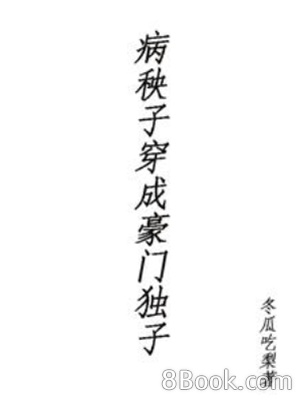 病秧子穿成豪门独子
冬瓜吃梨著
8Book.com